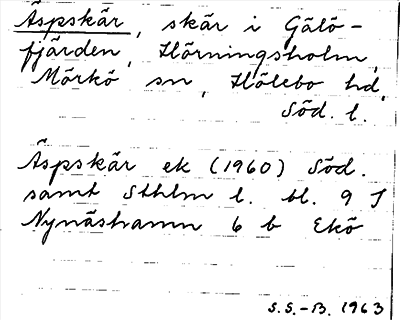 Äspskär, skär i Gälö-
fjärden, Hörningsholm,
Mörkö sn, Hölebo hd,
Söd. l.
Äspskär ek (1960) Söd.
samt Sthlm l. bl. 9 I
Nynäshamn 6 b Ekö
S.S.-B. 1963